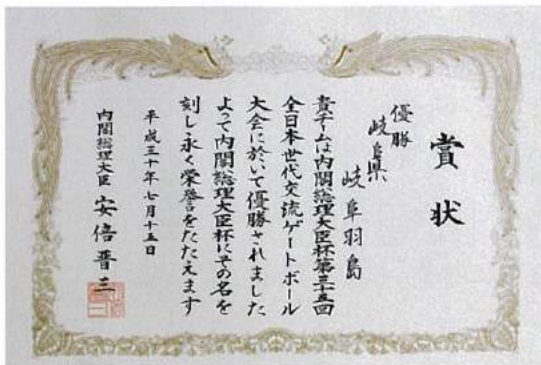 賞状
優勝
岐阜県
岐阜羽島
貴チームは内閣総理大臣杯第三十五回
全日本世代交流ゲートボール
大会に於いて優勝されました
よって内閣総理大臣杯にその名を
刻し永く栄誉をたたえます
平成三十年七月十五日
内閣総理大臣 安倍晋三